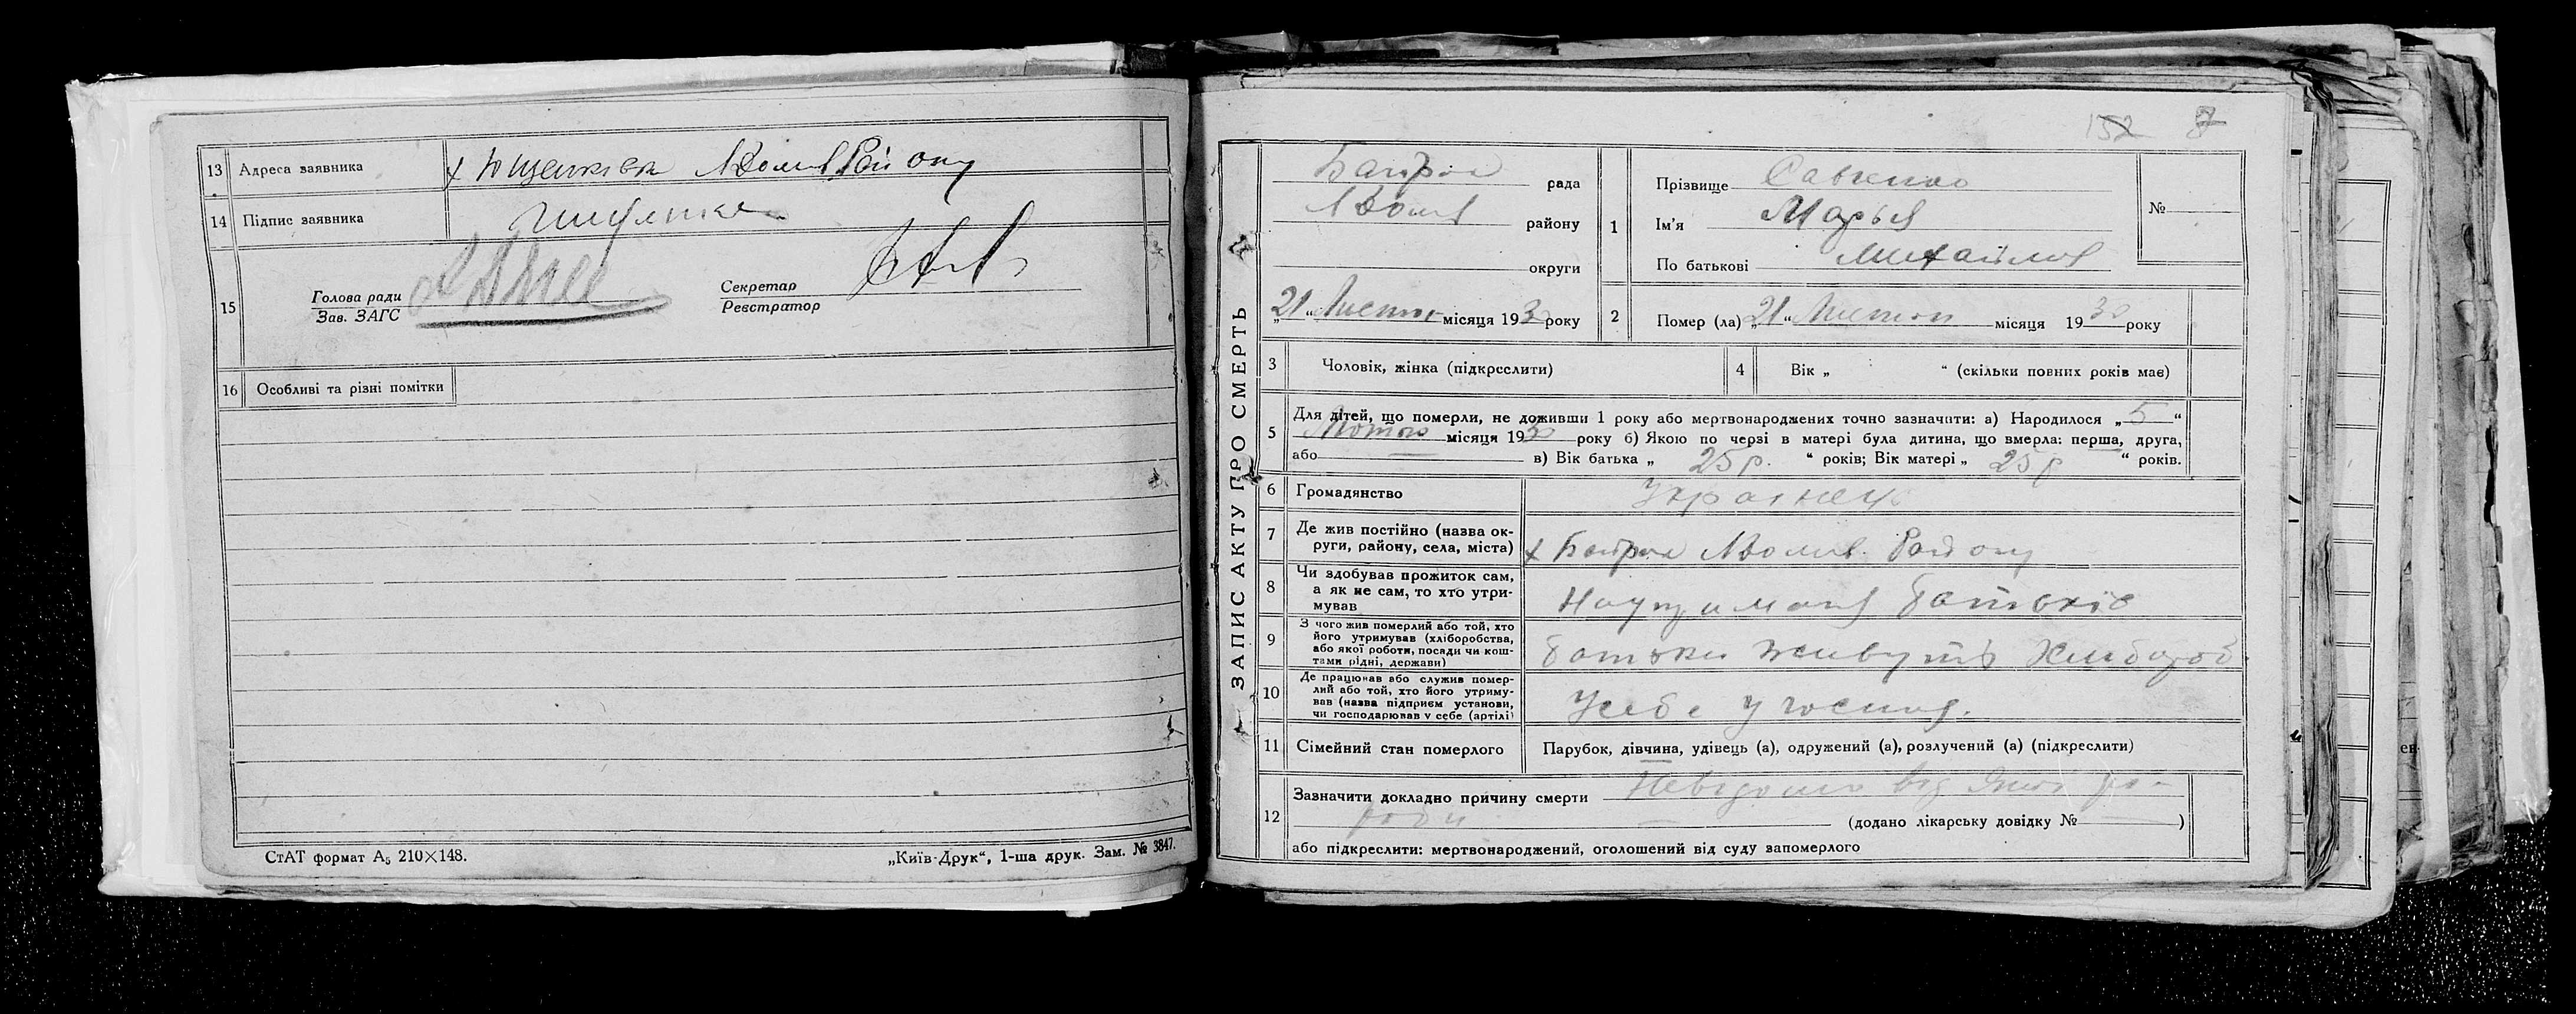 13 Адреса заявника х Ющенківка Лаольв Району
14 Підпис заявника
15 Голова ради
Зав. ЗАГС
Секретар
Реєстратор
16 Особливі та різні помітки
СтАТ формат А₅ 210×148.
„Київ-Друк“, 1-ша друк. Зам. № 3847.
152 8
ЗАПИС АКТУ ПРО СМЕРТЬ
рада
району
округи
„21“ Листоп місяця 1930 року
1 Прізвище Савченко
Ім'я Марья
По батькові Михайлов
№
2 Помер (ла) „21“ Листоп місяця 1930 року
3 Чоловік, жінка (підкреслити)
4 Вік „ “ (скільки повних років має)
5 Для дітей, що померли, не доживши 1 року або мертвонароджених точно зазначити: а) Народилося „5“
Лютого місяця 1930 року б) Якою по черзі в матері була дитина, що вмерла: перша, друга,
або в) Вік батька „25 р.“ років; Вік матері „25 р“ років.
6 Громадянство Украінец
7 Де жив постійно (назва ок-
руги, району, села, міста) х Району
8 Чи здобував прожиток сам,
а як не сам, то хто утри-
мував батьків
9 З чого жив померлий або той, хто
його утримував (хліборобства,
або якої роботи, посади чи кош-
тами рідні, держави) батьки живуть Хлибороб
10 Де працював або служив помер-
лий або той, хто його утриму-
вав (назва підприєм установи,
чи господарював у себе (артілі) Усебе
11 Сімейний стан померлого Парубок, дівчина, удівець (а), одружений (а), розлучений (а) (підкреслити)
12 Зазначити докладно причину смерти Невідомо від якої
(додано лікарську довідку № )
або підкреслити: мертвонароджений, оголошений від суду запомерлого